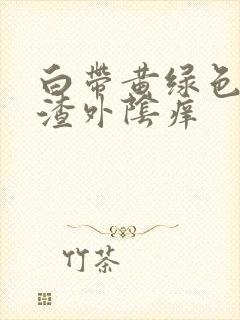 白帶黄绿色
渣外陰痒
竹茶